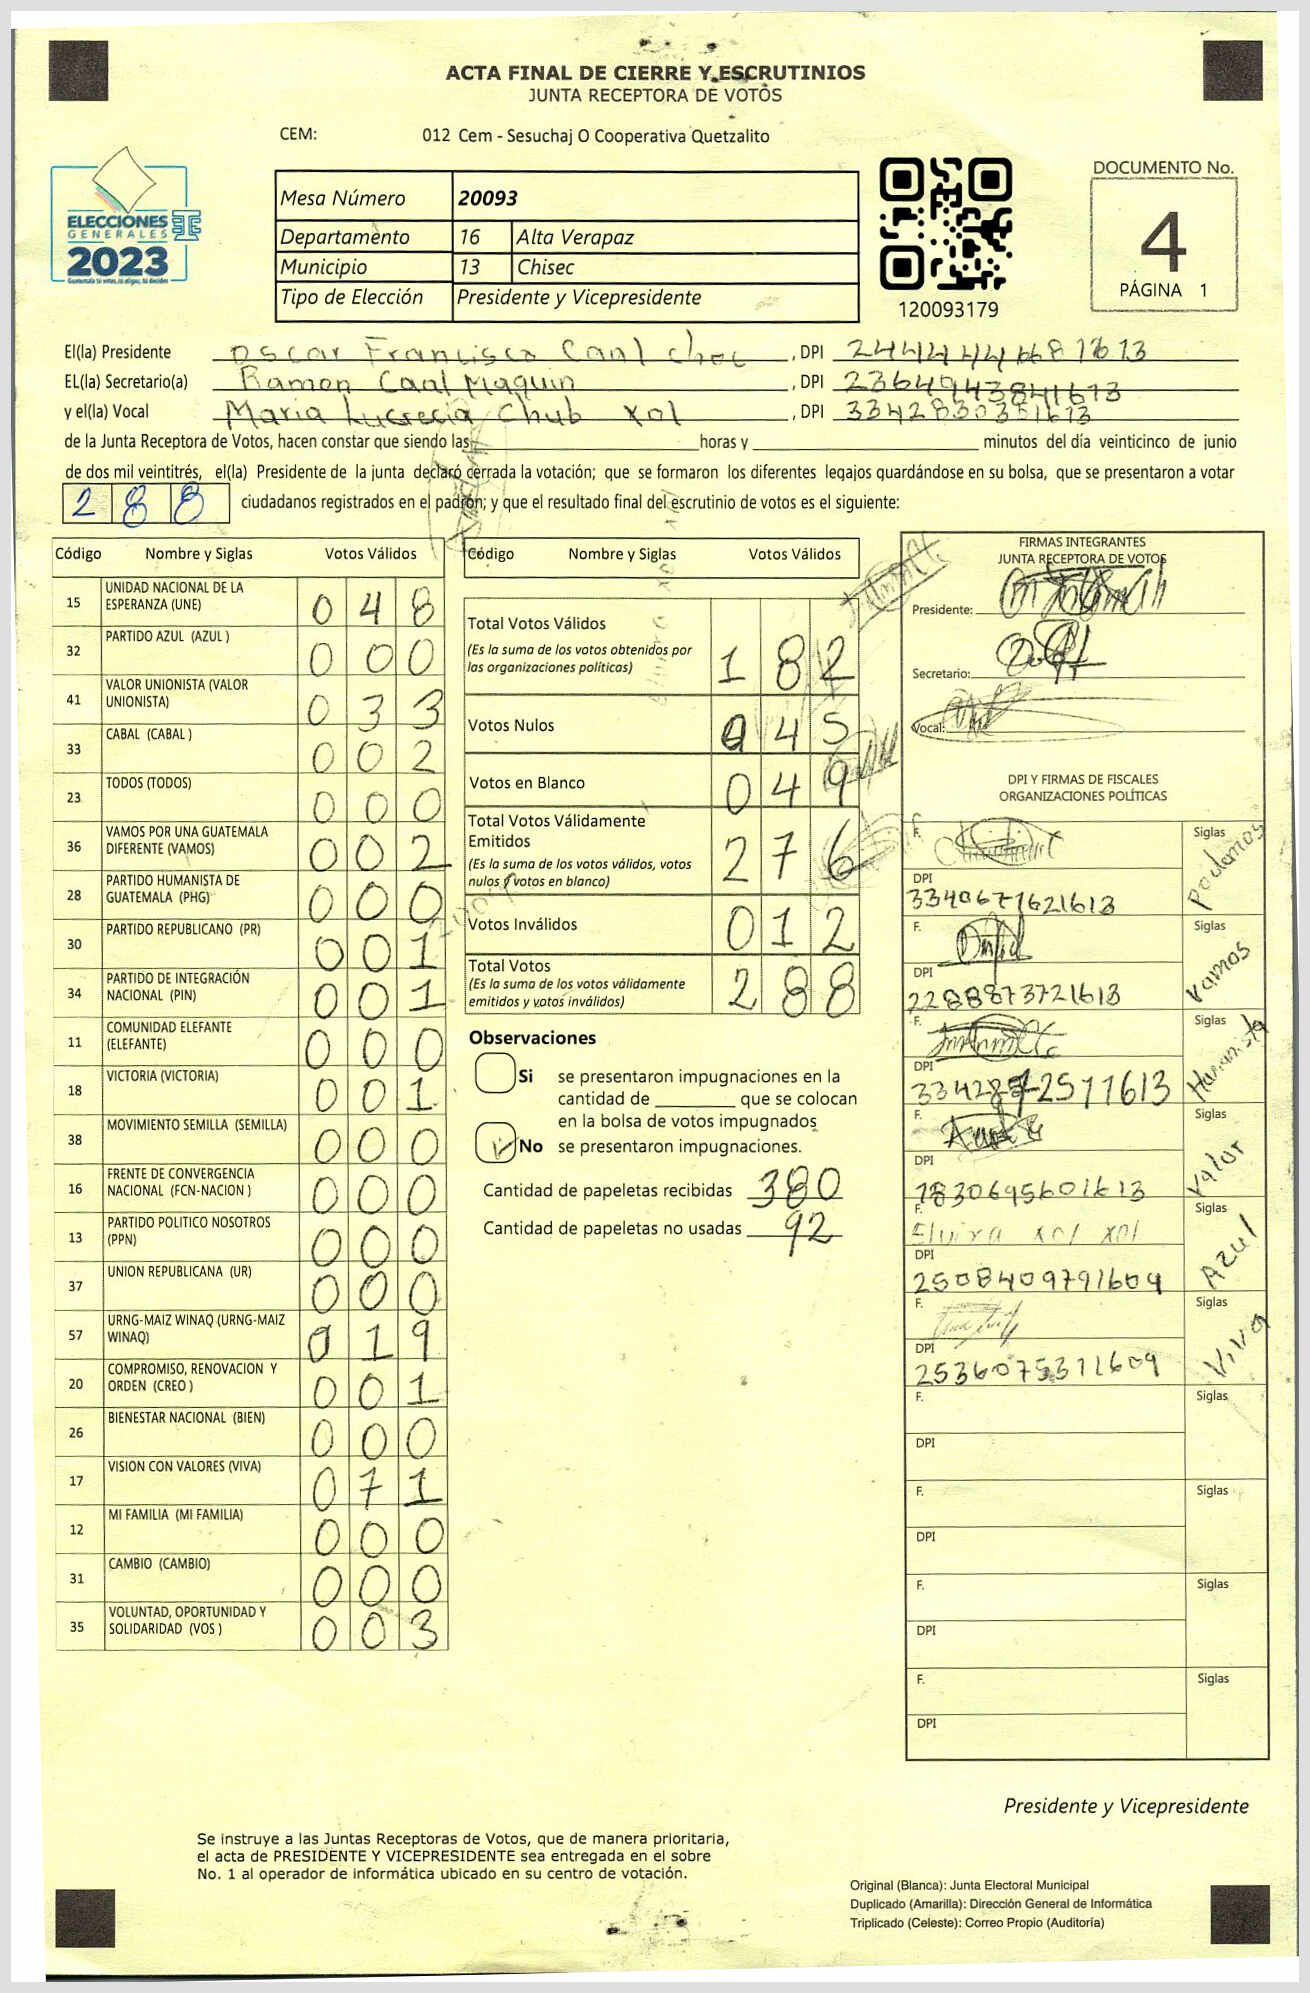 ACTA FINAL DE CIERRE Y ESCRUTINIOS
JUNTA RECEPTORA DE VOTOS
CEM: 012 Cem - Sesuchaj O Cooperativa Quetzalito
ELECCIONES
GENERALES
2023
Mesa Número 20093
Departamento 16 Alta Verapaz
Municipio 13 Chisec
Tipo de Elección Presidente y Vicepresidente
120093179
DOCUMENTO No.
4
PÁGINA 1
El(la) Presidente Oscar Francisco Caal Choc, DPI
EL(la) Secretario(a) Ramon Caal Maquin, DPI 2364994384 1673
y el(la) Vocal Maria Lucrecia Chub Xol, DPI 3342830351613
de la Junta Receptora de Votos, hacen constar que siendo las horas y minutos del día veinticinco de junio
de dos mil veintitrés, el(la) Presidente de la junta declaró cerrada la votación; que se formaron los diferentes legajos quardándose en su bolsa, que se presentaron a votar
288 ciudadanos registrados en el padrón; y que el resultado final del escrutinio de votos es el siguiente:
Código Nombre y Siglas Votos Válidos
15 UNIDAD NACIONAL DE LA ESPERANZA (UNE) 048
32 PARTIDO AZUL (AZUL ) 000
41 VALOR UNIONISTA (VALOR UNIONISTA) 033
33 CABAL (CABAL ) 002
23 TODOS (TODOS) 000
36 VAMOS POR UNA GUATEMALA DIFERENTE (VAMOS) 002
28 PARTIDO HUMANISTA DE GUATEMALA (PHG) 000
30 PARTIDO REPUBLICANO (PR) 001
34 PARTIDO DE INTEGRACIÓN NACIONAL (PIN) 001
11 COMUNIDAD ELEFANTE (ELEFANTE) 000
18 VICTORIA (VICTORIA) 001
38 MOVIMIENTO SEMILLA (SEMILLA) 000
16 FRENTE DE CONVERGENCIA NACIONAL (FCN-NACION ) 000
13 PARTIDO POLITICO NOSOTROS (PPN) 000
37 UNION REPUBLICANA (UR) 000
57 URNG-MAIZ WINAQ (URNG-MAIZ WINAQ) 019
20 COMPROMISO, RENOVACION Y ORDEN (CREO ) 001
26 BIENESTAR NACIONAL (BIEN) 000
17 VISION CON VALORES (VIVA) 071
12 MI FAMILIA (MI FAMILIA) 000
31 CAMBIO (CAMBIO) 000
35 VOLUNTAD, OPORTUNIDAD Y SOLIDARIDAD (VOS ) 003
Código Nombre y Siglas Votos Válidos
Total Votos Válidos 182
(Es la suma de los votos obtenidos por
las organizaciones políticas)
Votos Nulos 045
Votos en Blanco 049
Total Votos Válidamente
Emitidos 276
(Es la suma de los votos válidos, votos
nulos y votos en blanco)
Votos Inválidos 012
Total Votos 288
(Es la suma de los votos válidamente
emitidos y votos inválidos)
Observaciones
Si se presentaron impugnaciones en la
cantidad de que se colocan
en la bolsa de votos impugnados
No se presentaron impugnaciones.
Cantidad de papeletas recibidas 380
Cantidad de papeletas no usadas 92
FIRMAS INTEGRANTES
JUNTA RECEPTORA DE VOTOS
Presidente:
Secretario:
Vocal:
DPI Y FIRMAS DE FISCALES
ORGANIZACIONES POLÍTICAS
F. Siglas Podemos
DPI 3340671621613
F. Siglas Vamos
DPI 2288873721613
F. Siglas Humanista
DPI
F. Siglas Valor
DPI 1830695601613
F. Elvira Xol Xol Siglas Azul
DPI 2508409791609
F. Siglas Viva
DPI 2536075311609
F. Siglas
DPI
F. Siglas
DPI
F. Siglas
DPI
F. Siglas
DPI
Presidente y Vicepresidente
Se instruye a las Juntas Receptoras de Votos, que de manera prioritaria,
el acta de PRESIDENTE Y VICEPRESIDENTE sea entregada en el sobre
No. 1 al operador de informática ubicado en su centro de votación.
Original (Blanca): Junta Electoral Municipal
Duplicado (Amarilla): Dirección General de Informática
Triplicado (Celeste): Correo Propio (Auditoría)